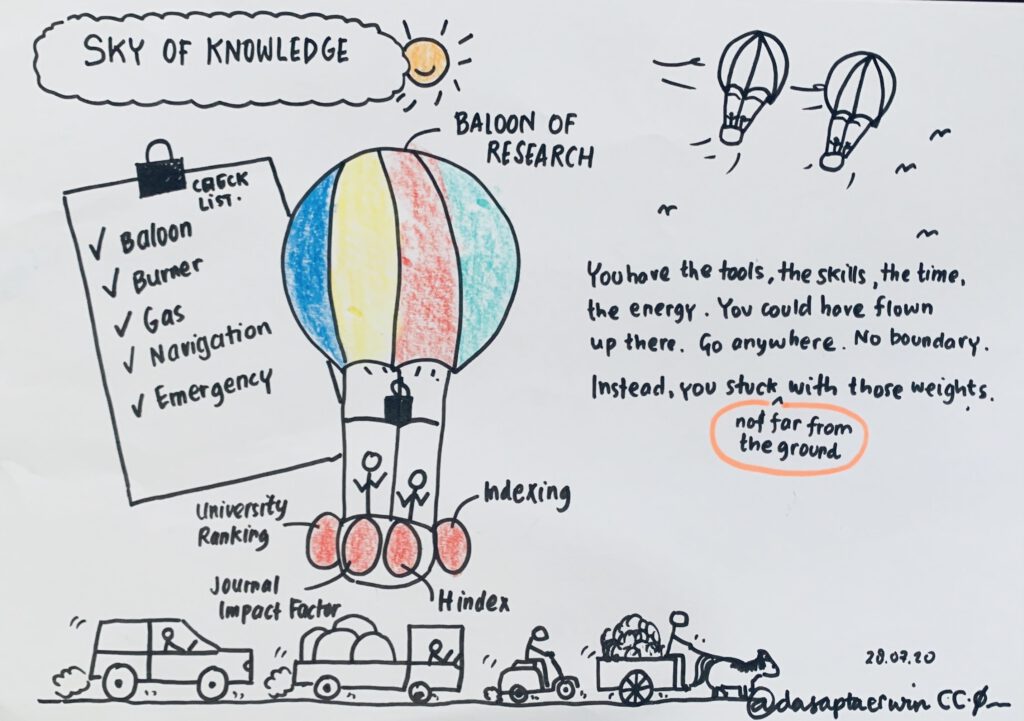 SKY OF KNOWLEDGE
BALOON OF
RESEARCH
CHECK
LIST.
✓ Baloon
✓ Burner
✓ Gas
✓ Navigation
✓ Emergency
You have the tools, the skills, the time,
the energy. You could have flown
up there. Go anywhere. No boundary.
Instead, you stuck ^ with those weights.
not far from
the ground
University
Ranking
Journal
Impact Factor
H index
Indexing
28.07.20
@dasaptaerwin CC-0